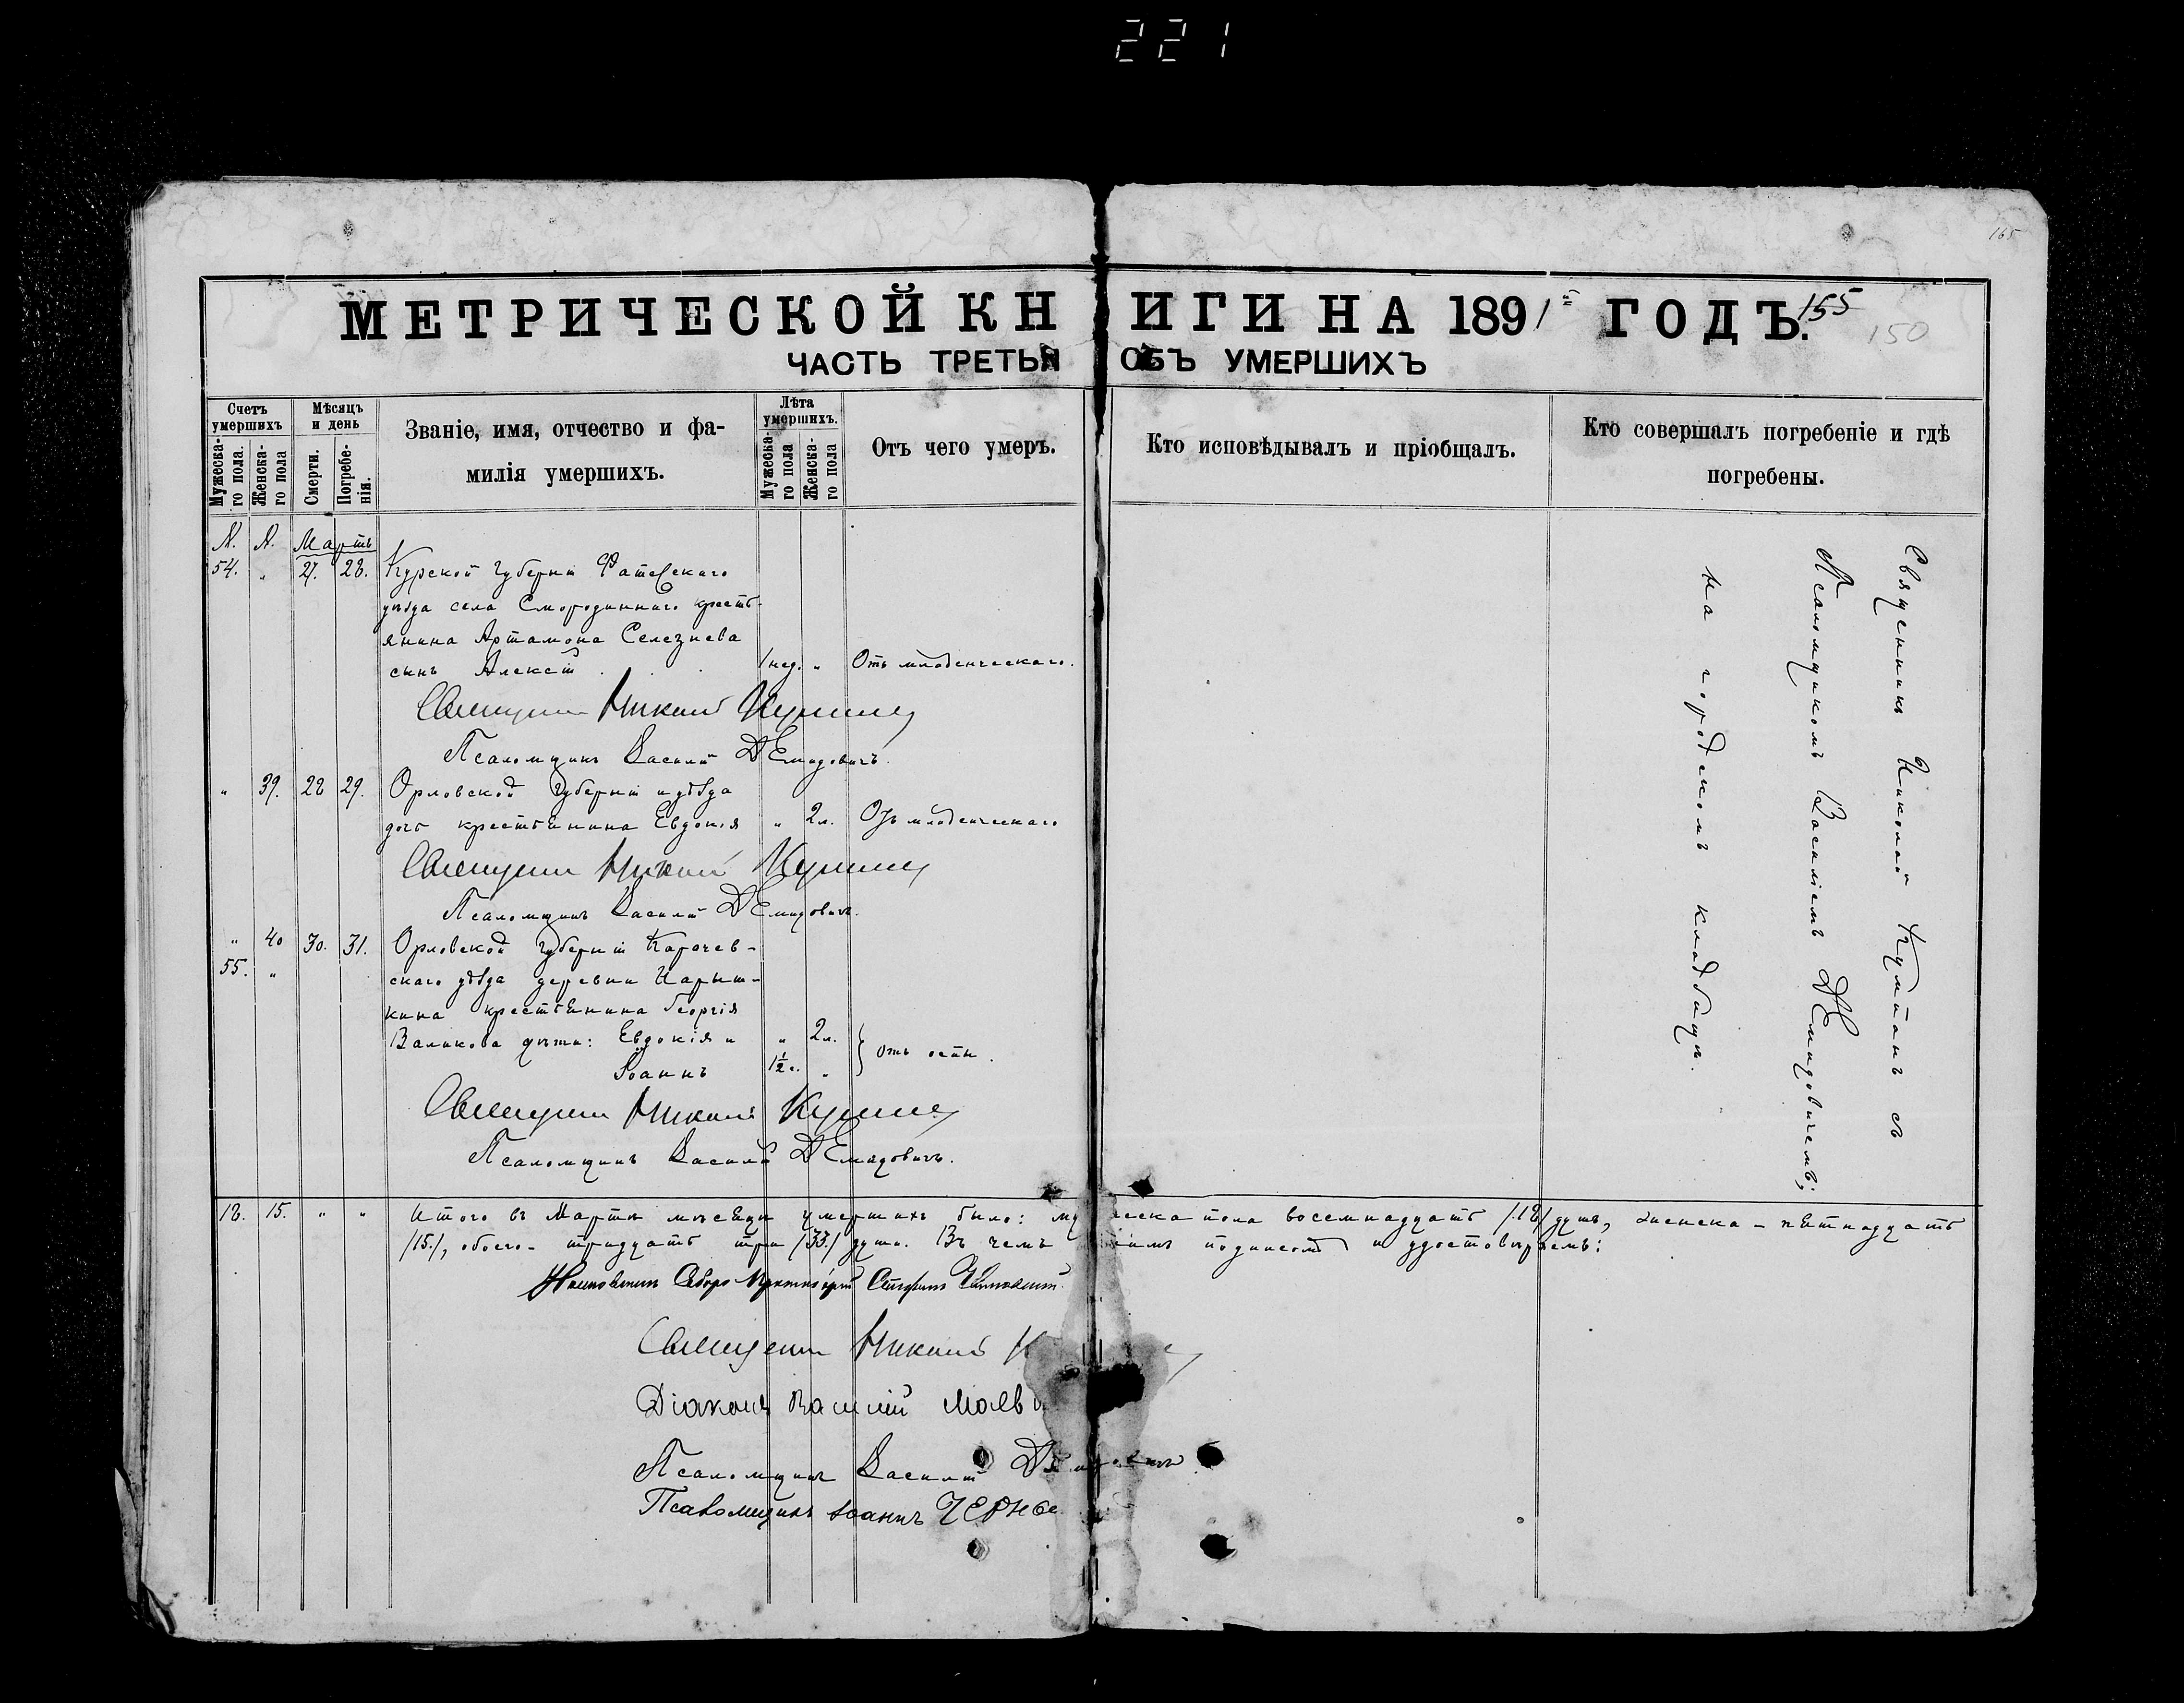 221
165
МЕТРИЧЕСКОЙ КНИГИ НА 1891й ГОДЪ.
155
150
ЧАСТЬ ТРЕТЬЯ ОБЪ УМЕРШИХЪ
Счетъ умершихъ
Мужеска-го пола.
Женска-го пола
Мѣсяцъ и день
Смерти.
Погребе-нія.
Званіе, имя, отчество и фа-
милія умершихъ.
Лѣта умершихъ.
Мужеска-го пола
Женска-го пола
Отъ чего умеръ.
Кто исповѣдывалъ и пріобщалъ.
Кто совершалъ погребеніе и гдѣ
погребены.
№. №. Мартъ
54. " 27. 28. Курской губерніи Фатежскаго
уѣзда села Смородиннаго кресть-
янина Артамона Селезнева
сынъ Алексій 1 нед. " Отъ младенческаго.
Священникъ Николай
Псаломщикъ Василій Демидовичъ.
" 39. 28 29. Орловской губерніи и уѣзда
дочь крестьянина Евдокія " 2 л. Отъ младенческаго
Священникъ Николай
Псаломщикъ Василій Демидовичъ.
" 40 30. 31. Орловской губерніи Карачев-
55. " скаго уѣзда деревни Нарыш-
кина крестьянина Георгія
Валикова дѣти: Евдокія и " 2 л.
Іоаннъ 1½ г. " } отъ оспы.
Священникъ Николай
Псаломщикъ Василій Демидовичъ.
Священникъ Николай съ
Псаломщикомъ Василіемъ Демидовичемъ;
на городскомъ кладбищѣ.
18. 15. " " Итого въ Мартѣ мѣсяцѣ умершихъ было: мужеска пола восемнадцать /18/ душъ, женска – пятнадцать
/15/, обоего – тридцать три /33/ души. Въ чемъ подписомъ и удостовѣряемъ:
Собора Протоіерей Стефанъ
Священникъ Николай
Діаконъ Василій
Псаломщикъ Василій Демидовичъ
Псаломщикъ Іоаннъ